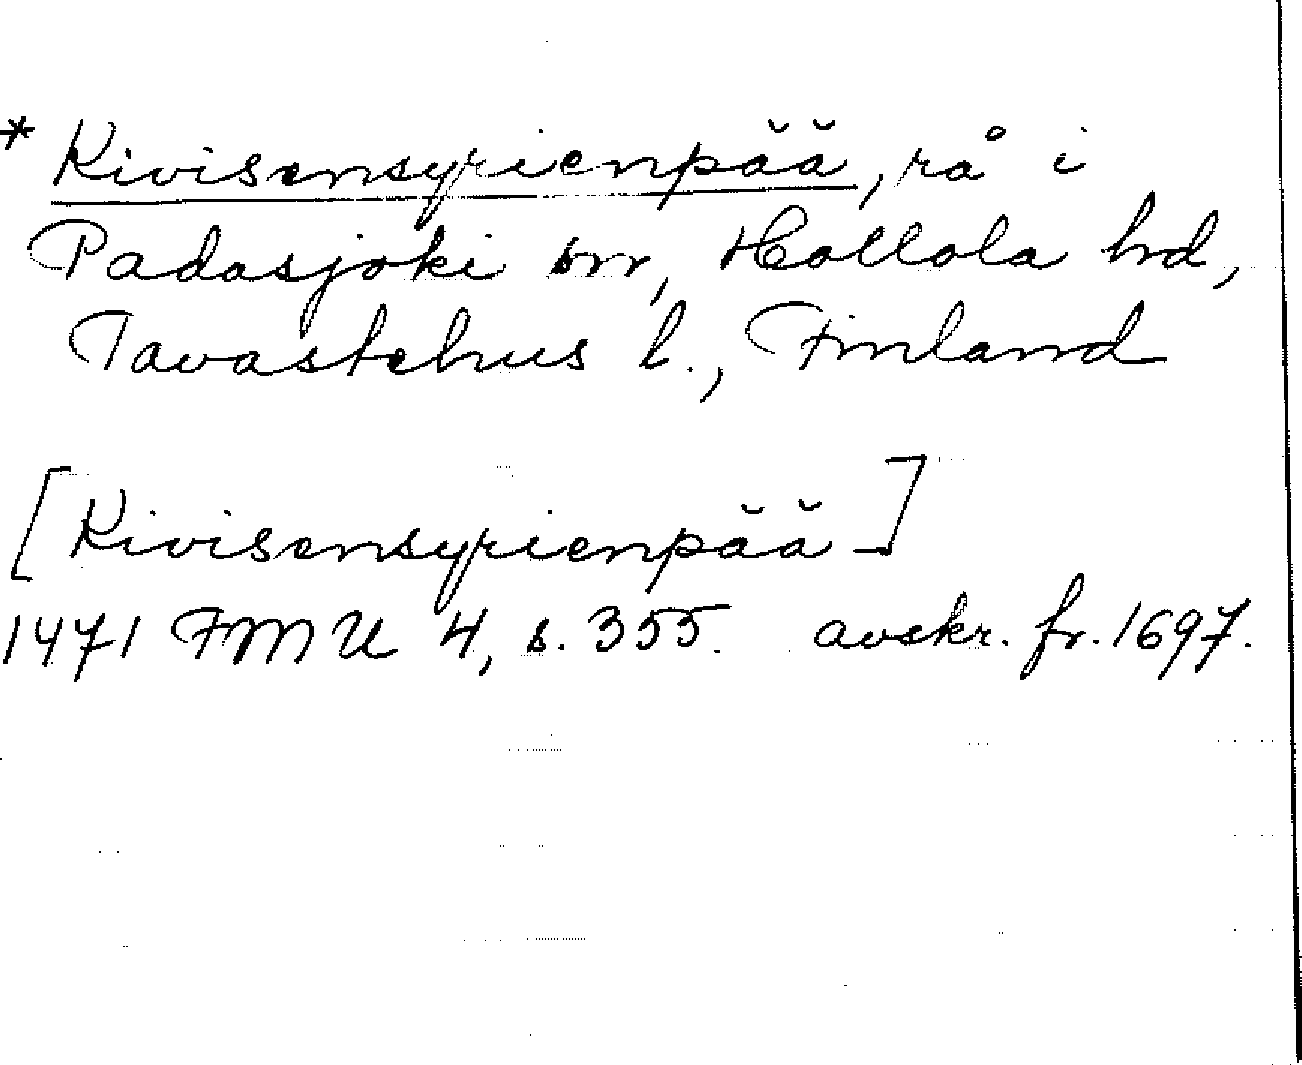 * Kivisensyrienpää, rå i
Padasjoki sn, Hollola hd,
Tavastehus l., Finland
[Kivisensyrienpää]
1471 FMU 4, s. 355. avskr. fr. 1697.